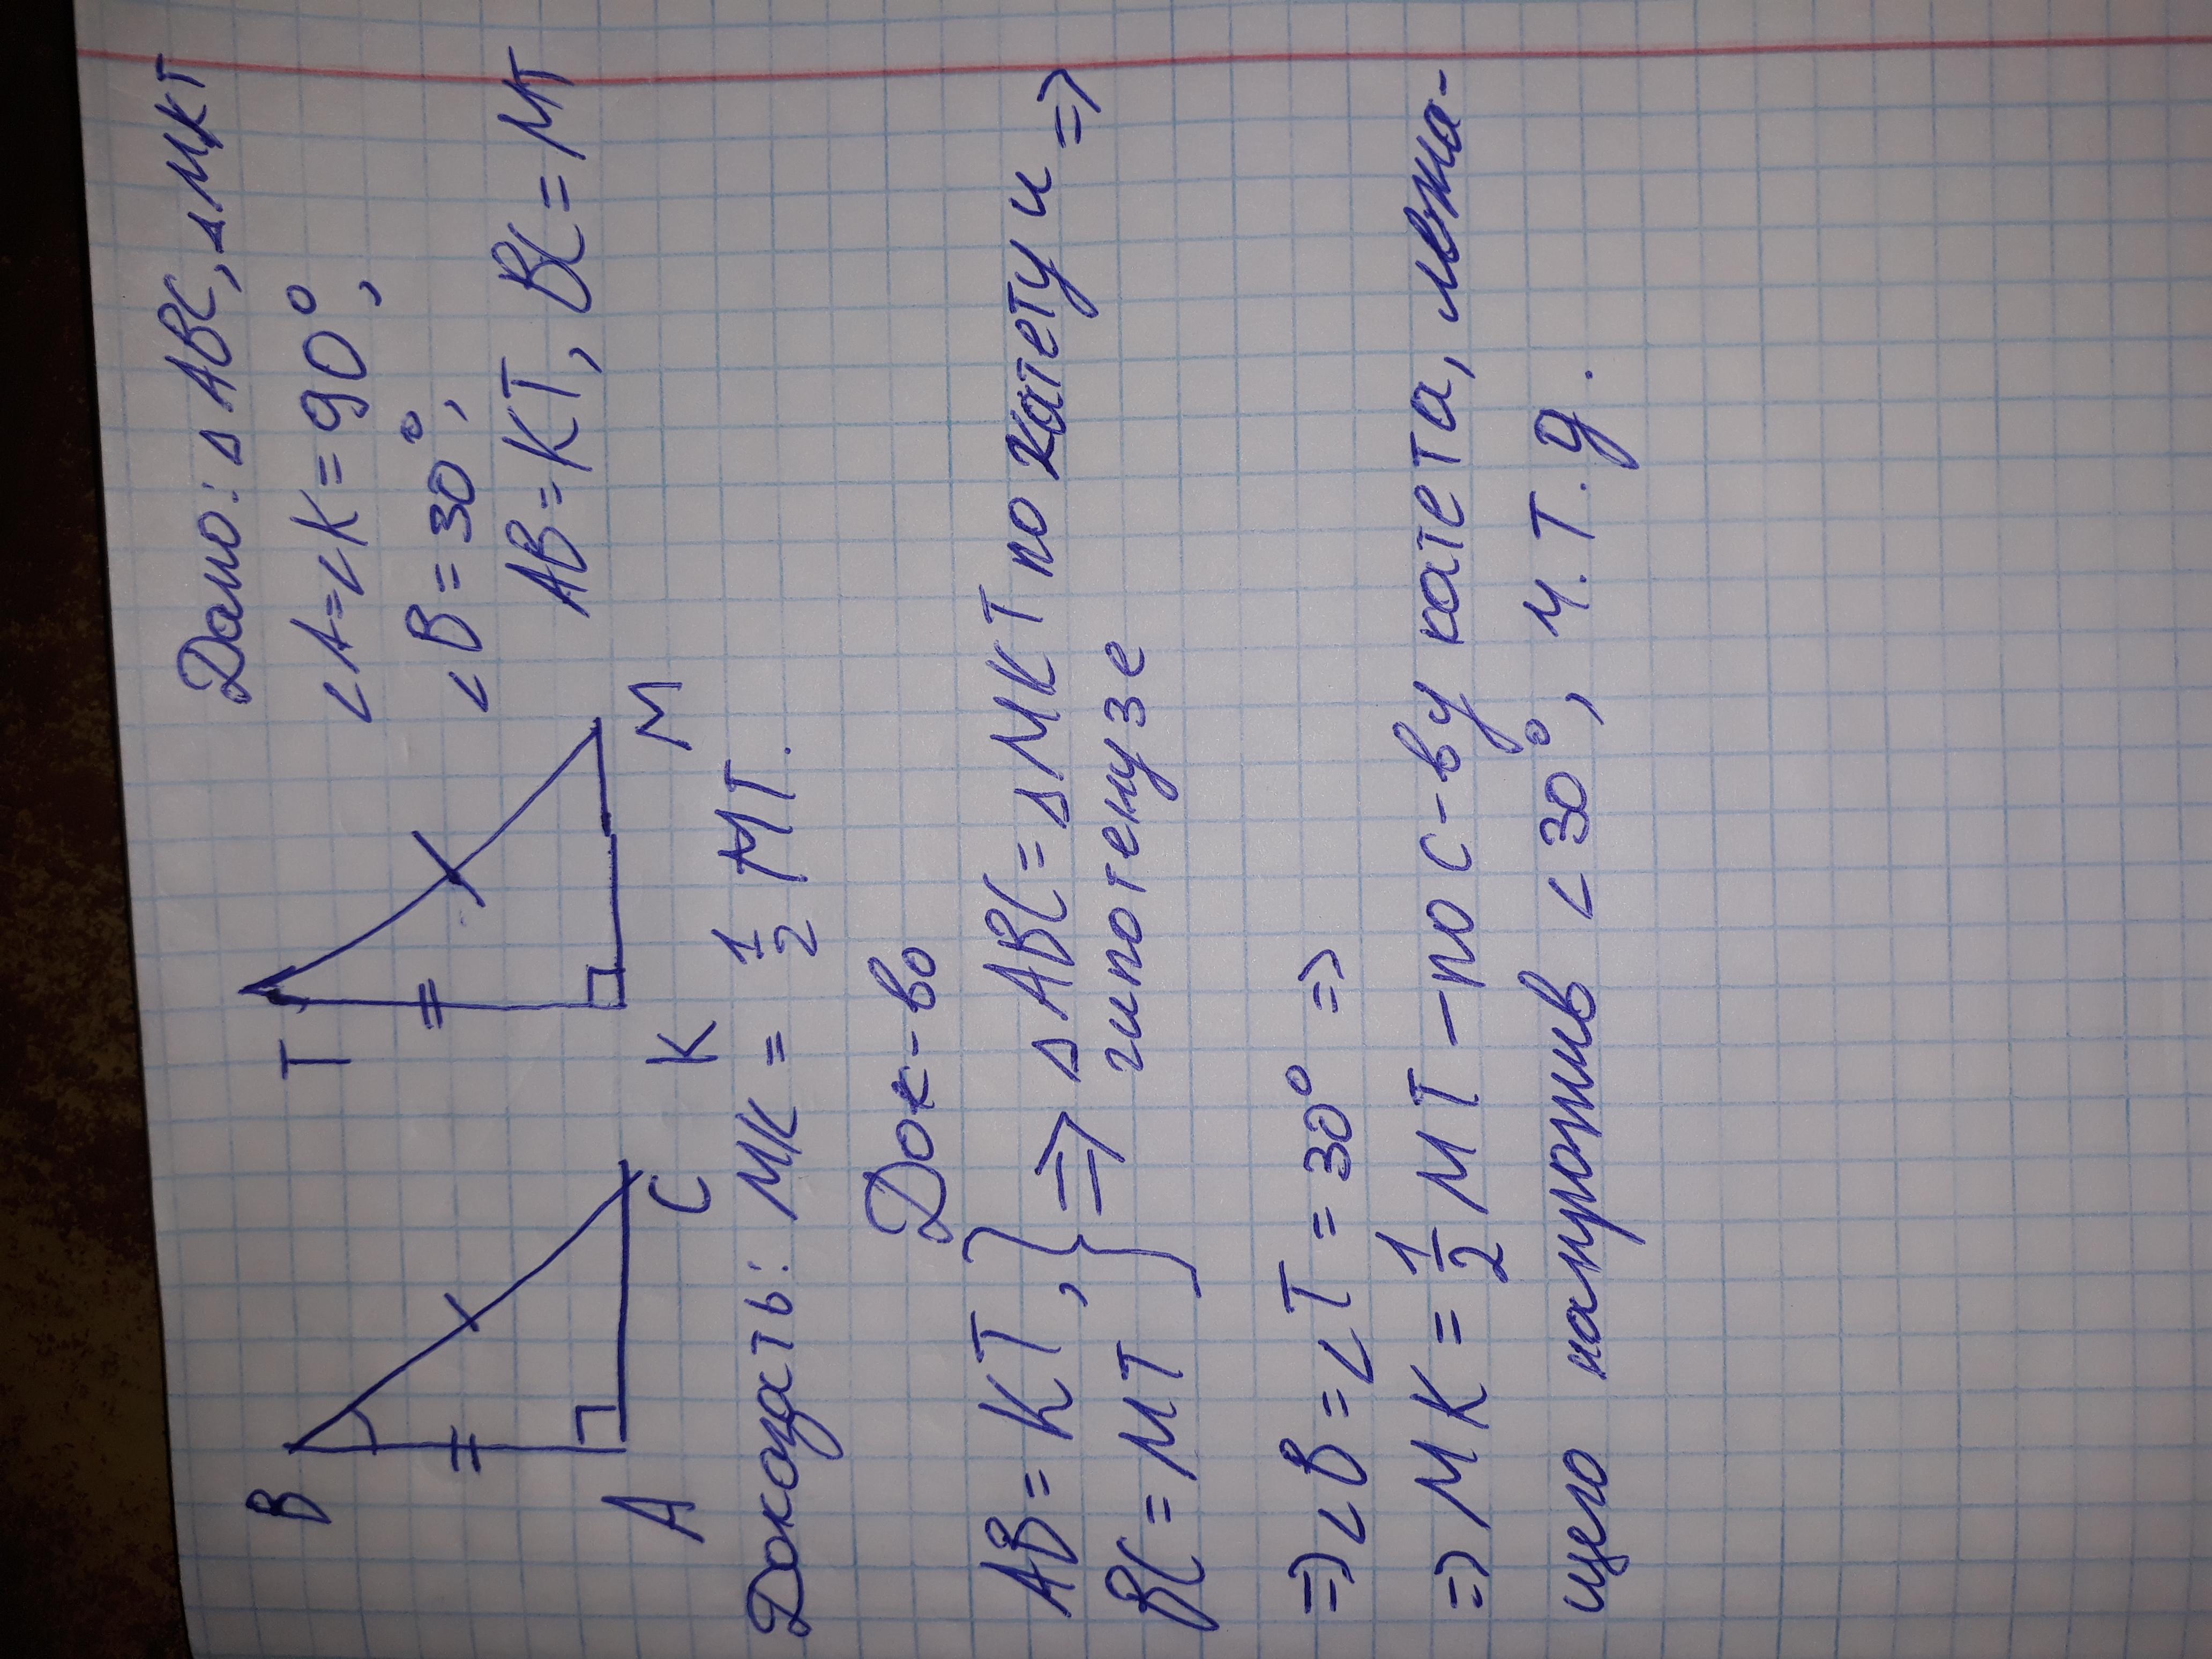 Дано: Δ ABC, Δ MKT
∠A=∠K=90°,
∠B=30°,
AB=KT, BC=MT
B
T
A
C
K
M
Доказать: MK = 1/2 MT.
Док-во
AB=KT, } => Δ ABC = Δ MKT по катету и =>
BC=MT
гипотенузе
=> ∠B=∠T=30° =>
=> MK = 1/2 MT - по с-ву катета, лежа-
щего напротив ∠30°, ч.т.д.